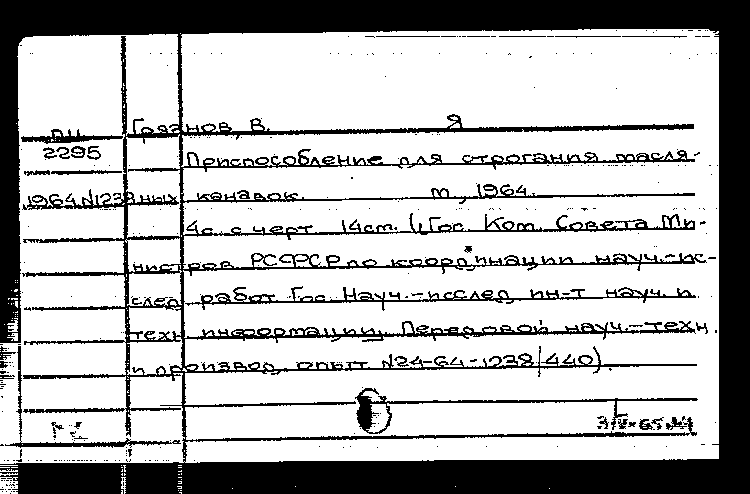 пц Грязнов, В. Я
2295 Приспособление для строгания масля-
1964 N1238 ных канавок. м, 1964.
4с. с черт. 14см. (Гос. Ком. Совета Ми-
нистров РСФСР по координации науч.-ис-
след. работ Гос. Науч.-исслед. ин-т науч. и
техн. информации. Передовой науч.-техн.
и производ. опыт N24-64-1238/440).
3/IV-65